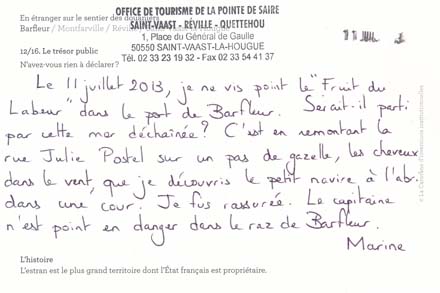 En étranger sur le sentier des douaniers
Barfleur / Montfarville / Réville
OFFICE DE TOURISME DE LA POINTE DE SAIRE
SAINT-VAAST - RÉVILLE - QUETTEHOU
1, Place du Général de Gaulle
50550 SAINT-VAAST-LA-HOUGUE
Tél. 02 33 23 19 32 - Fax 02 33 54 41 37
12/16. Le trésor public
N'avez-vous rien à déclarer ?
Le 11 juillet 2013, je ne vis point le "Fruit du
Labeur" dans le port de Barfleur. Serait-il parti
par cette mer déchaînée ? C'est en remontant la
rue Julie Postel sur un pas de gazelle, les cheveux
dans le vent, que je découvris le petit navire à l'abri
dans une cour. Je fus rassurée. Le capitaine
n'est point en danger dans le raz de Barfleur.
Marine
L'histoire
L'estran est le plus grand territoire dont l'État français est propriétaire.